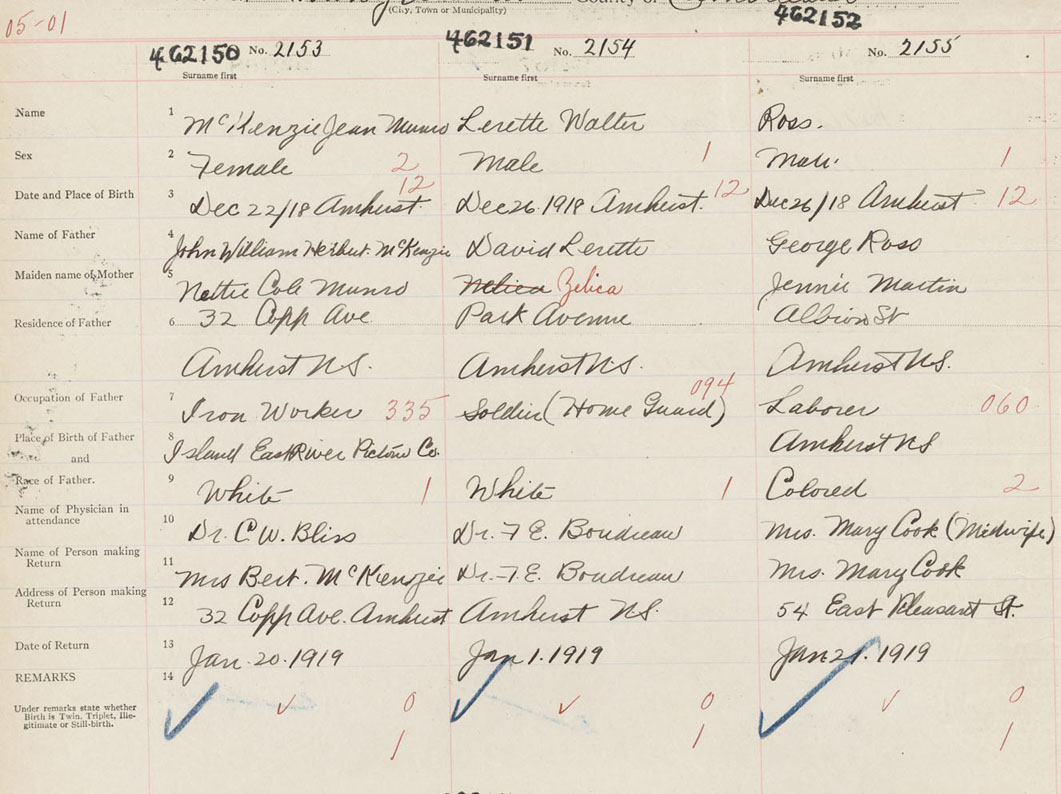 (City, Town or Municipality) County of
05-01
462150 No. 2153 462151 No. 2154 462152 No. 2155
Surname first Surname first Surname first
Name 1 McKenzie Jean Munro Lerette Walter Ross.
Sex 2 Female 2 Male 1 Male 1
Date and Place of Birth 3 Dec 22/18 Amherst. 12 Dec 26 1918 Amherst. 12 Dec 26/18 Amherst 12
Name of Father 4 John William Herbert McKenzie David Lerette George Ross
Maiden name of Mother 5 Nettie Cole Munro Zelica Jennie Martin
Residence of Father 6 32 Copp Ave Park Avenue Albion St
Amherst N.S. Amherst N.S. Amherst N.S.
Occupation of Father 7 Iron Worker 335 Soldier (Home Guard) 094 Laborer 060
Place of Birth of Father 8 Island East River Pictou Co. Amherst NS
and
Race of Father. 9 White 1 White 1 Colored 2
Name of Physician in
attendance 10 Dr. C. W. Bliss Dr. F. E. Boudreau Mrs. Mary Cook (Midwife)
Name of Person making
Return 11 Mrs Bert. McKenzie Dr. F. E. Boudreau Mrs. Mary Cook
Address of Person making
Return 12 32 Copp Ave. Amherst Amherst N.S. 54 East Pleasant St.
Date of Return 13 Jan. 20. 1919 Jan 1. 1919 Jan 21. 1919
REMARKS 14
Under remarks state whether
Birth is Twin, Triplet, Ille-
gitimate or Still-birth.
0 0 0
1 1 1